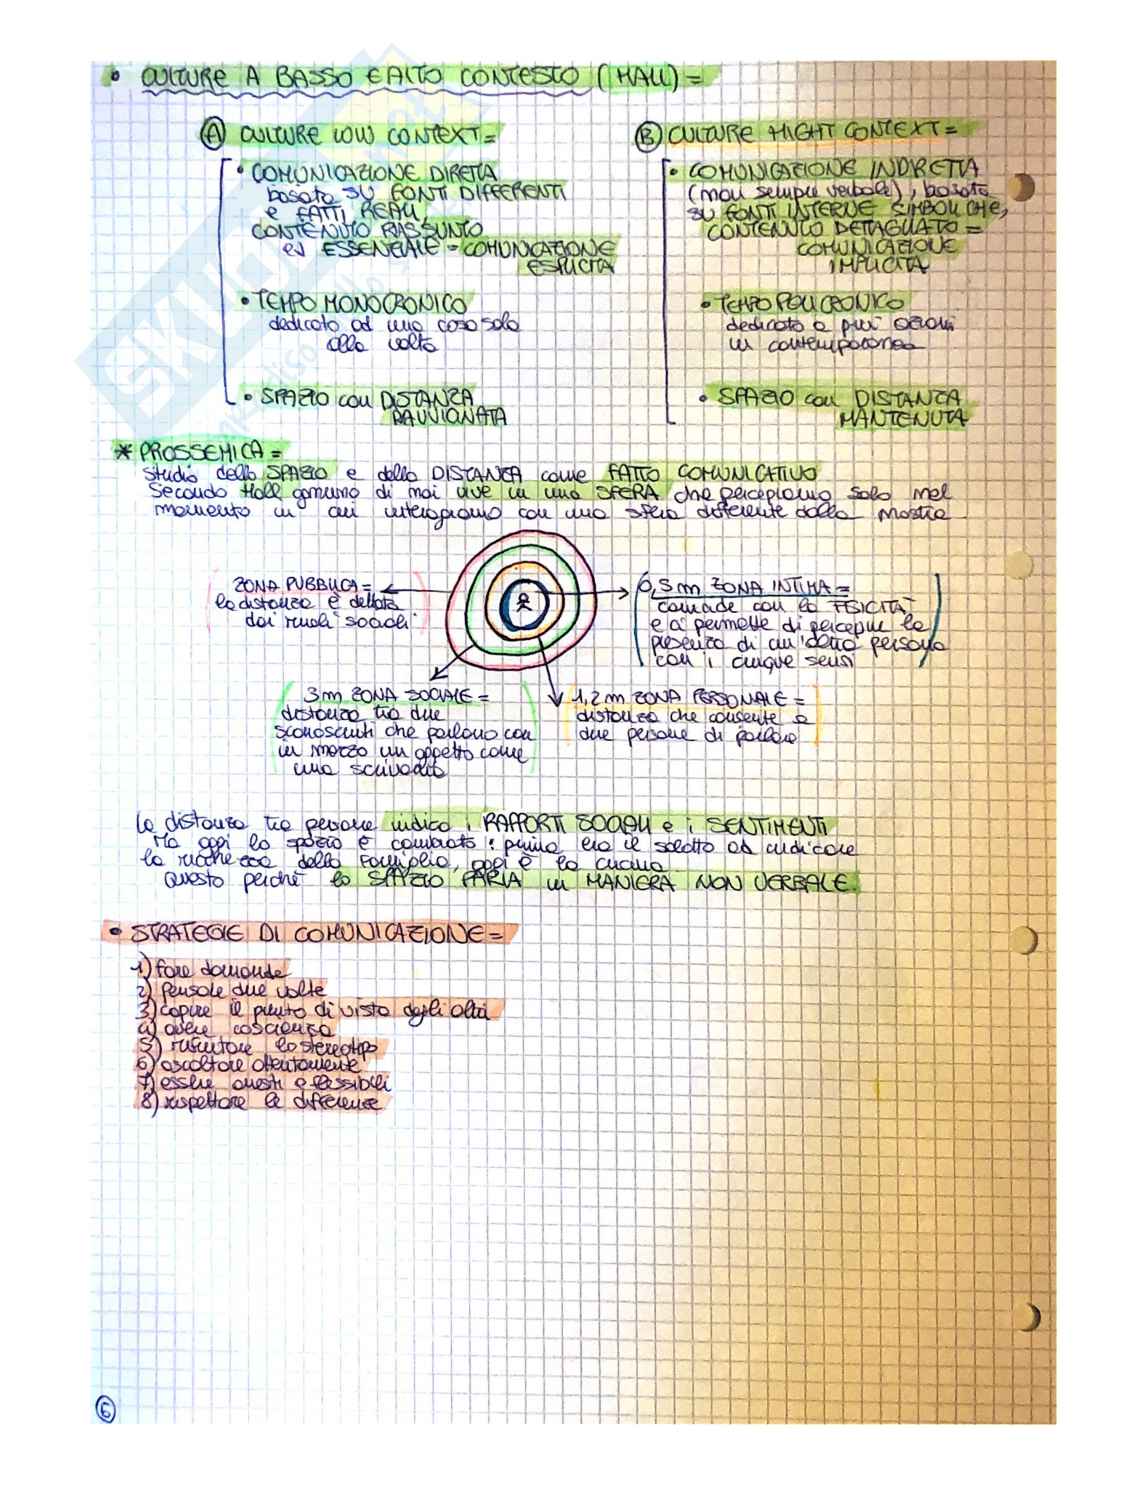 • CULTURE A BASSO E ALTO CONTESTO (HALL) =
Ⓐ CULTURE LOW CONTEXT =
• COMUNICAZIONE DIRETTA
basata su FONTI DIFFERENTI
e FATTI REALI,
CONTENUTO RIASSUNTO
ed ESSENZIALE = COMUNICAZIONE
ESPLICITA
• TEMPO MONOCRONICO
dedicato ad una cosa sola
alla volta
• SPAZIO con DISTANZA
RAVVICINATA
Ⓑ CULTURE HIGHT CONTEXT =
• COMUNICAZIONE INDIRETTA
(non sempre verbale), basata
su FONTI INTERNE SIMBOLICHE,
CONTENUTO DETTAGLIATO =
COMUNICAZIONE
IMPLICITA
• TEMPO POLICRONICO
dedicato a più azioni
in contemporanea
• SPAZIO con DISTANZA
MANTENUTA
* PROSSEMICA =
studio dello SPAZIO e della DISTANZA come FATTO COMUNICATIVO
Secondo Hall ognuno di noi vive in una SFERA che percepiamo solo nel
momento in cui interagiamo con una sfera differente dalla nostra
ZONA PUBBLICA =
la distanza è dettata
dai ruoli sociali
0,5 m ZONA INTIMA =
coincide con la FISICITÀ
e ci permette di percepire la
presenza di un'altra persona
con i cinque sensi
3 m ZONA SOCIALE =
distanza tra due
sconosciuti che parlano con
in mezzo un oggetto come
una scrivania
1,2 m ZONA PERSONALE =
distanza che consente a
due persone di parlare
la distanza tra persone indica i RAPPORTI SOCIALI e i SENTIMENTI
Ma oggi lo spazio è cambiato: prima era il salotto ad indicare
la ricchezza della famiglia, oggi è la cucina
Questo perché lo SPAZIO PARLA in MANIERA NON VERBALE.
• STRATEGIE DI COMUNICAZIONE =
1) fare domande
2) pensare due volte
3) capire il punto di vista degli altri
4) avere coscienza
5) rifiutare lo stereotipo
6) ascoltare attentamente
7) essere onesti e flessibili
8) rispettare le differenze
6